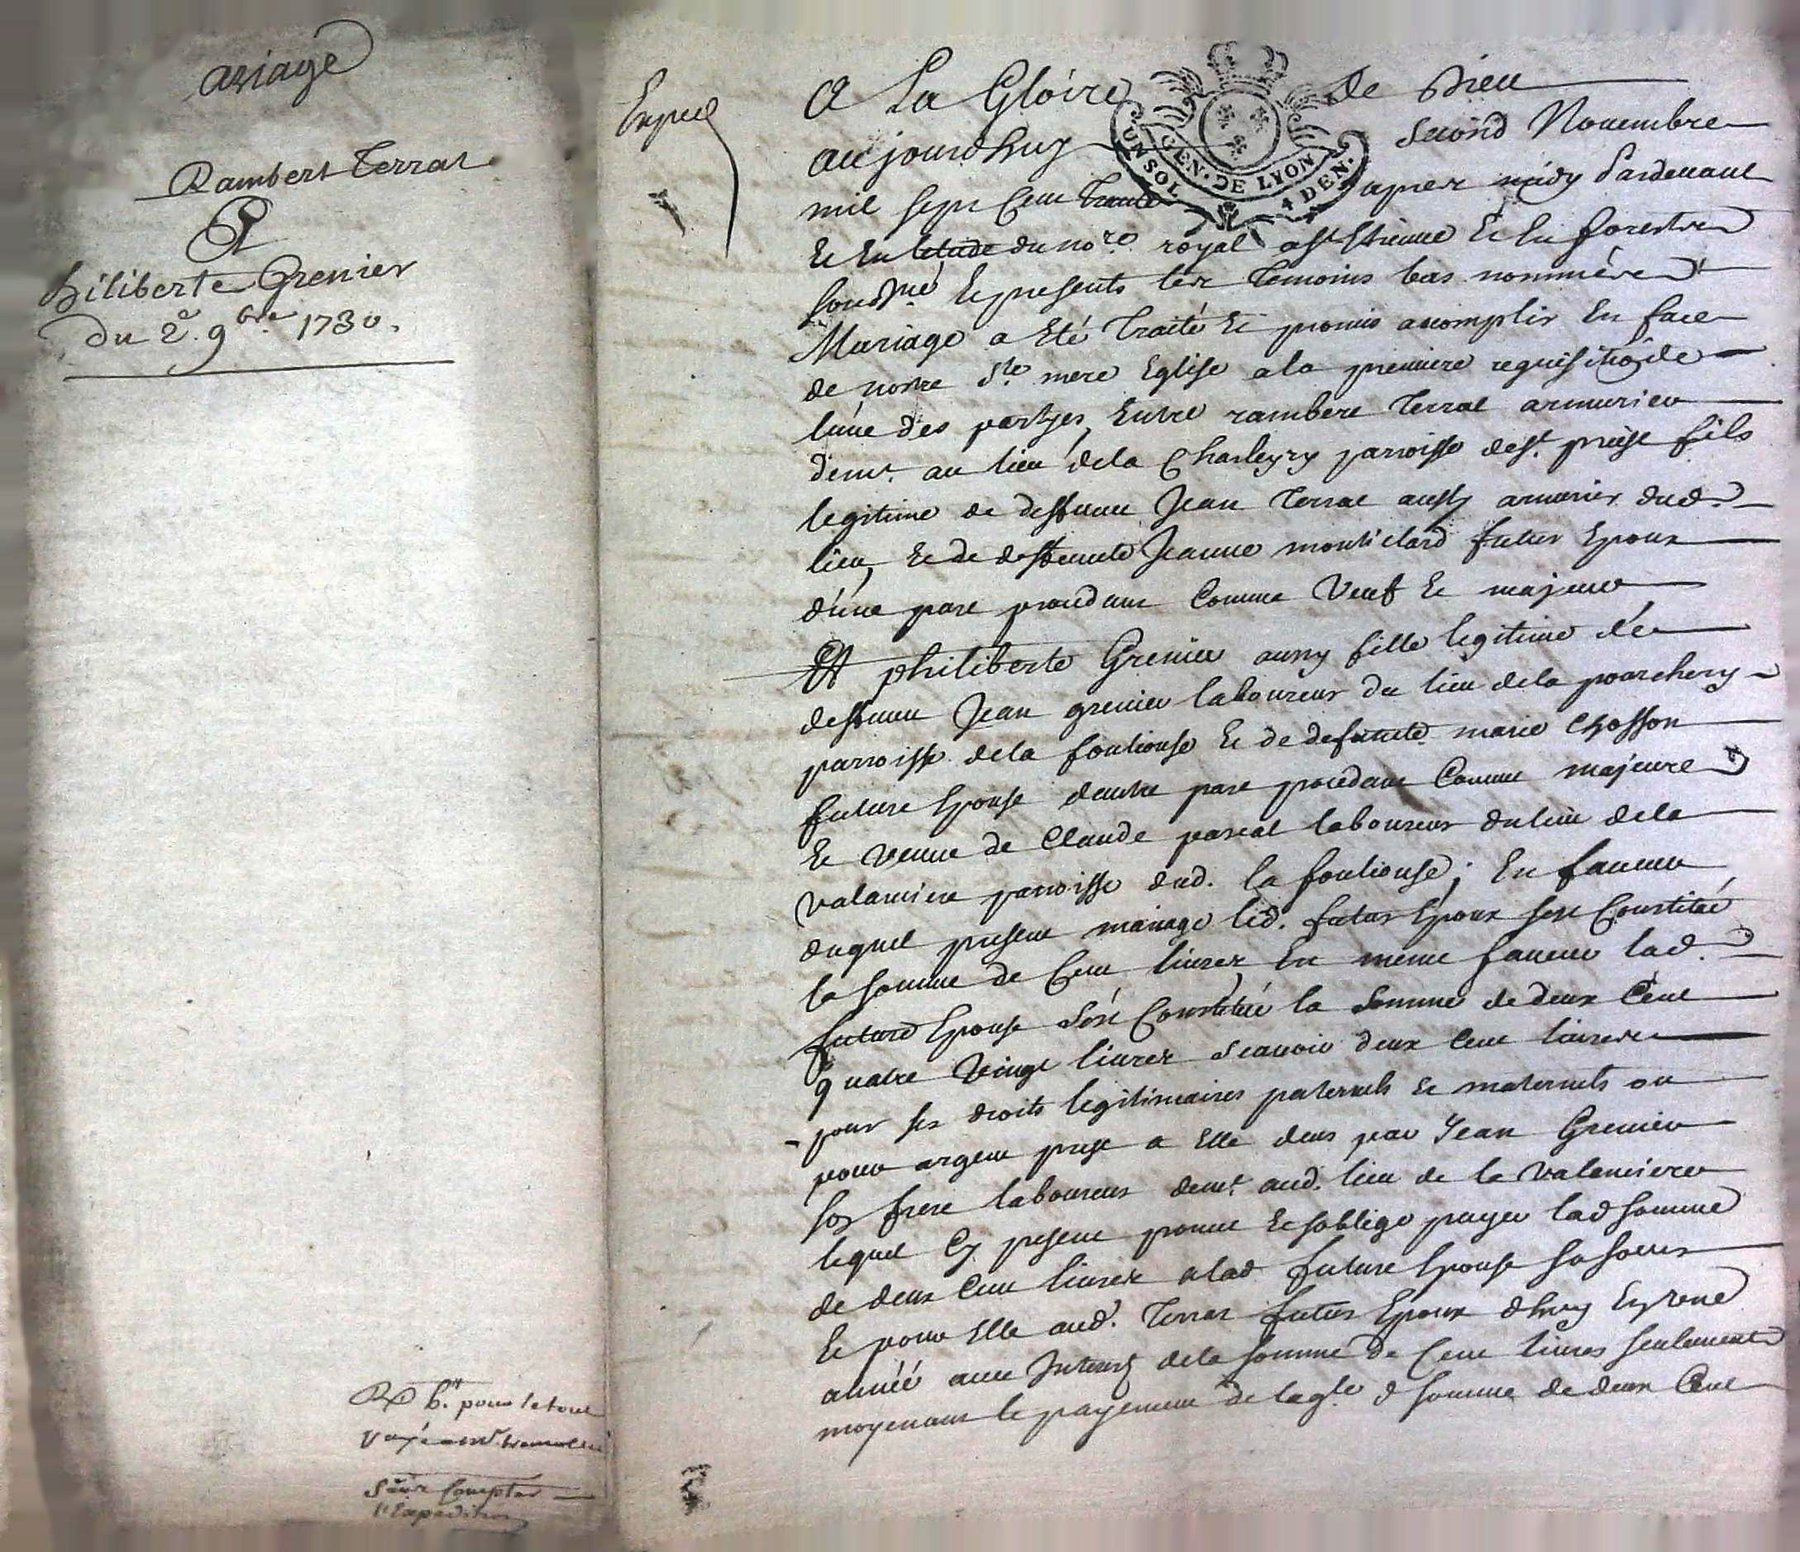 ariage
Rambert Terrat
Et
hiliberte Grenier
du 2e. 9bre 1730.
Rx 6tt pour le tout
sans Compter
l'Expedition
Exped
A La Gloire de Dieu
aujourdhuy second Novembre
mil sept Cent Trente apres midy Pardevant
Et En letude du nore. royal a St Etienne Et En forest
soussné Et presents les Temoins bas nommés
Mariage a Eté Traité Et promis acomplir En face
de nostre Ste. mere Eglise a la premiere requisition de
lune des partyes, Entre rambert Terrat armurier
demt. au lieu de la Charleyry parroisse de St. priest fils
legitime de deffunt Jean Terrat aussy armurier dud.
lieu, Et de deffuncte Jeanne monticlard futur Epoux
d'une part procedant Comme Veuf Et majeur
Et philiberte Grenier aussy fille legitime de
deffunt Jean grenier laboureur du lieu de la poarchery
parroisse de la fouliouse Et de defuncte marie Chosson
future Epouse dautre part procedant Comme majeure
Et veuve de Claude pascal laboureur du lieu de la
valanciere parroisse dud. la fouliouse; En faveur
duquel present mariage led. futur Epoux sest Constitué
la somme de Cent livres En meme faveur lad.
future Epouse s'est Constitué la somme de deux Cent
quatre vingt livres scavoir deux Cent livres
pour ses droits legitimaires paternels et maternels ou
pour argent preste a Elle deus par Jean Grenier
son frere laboureur demt. aud. lieu de la valanciere
lequel Cy present promet Et soblige payer lad somme
de deux Cent livres a lad future Epouse sa soeur
Et pour Elle aud. Terrat futur Epoux dhuy En une
année avec Interest de la somme de Cent livres seulement
moyenant le payement de laqle. d somme de deux Cent
GEN. DE LYON
UN SOL 4 DEN.